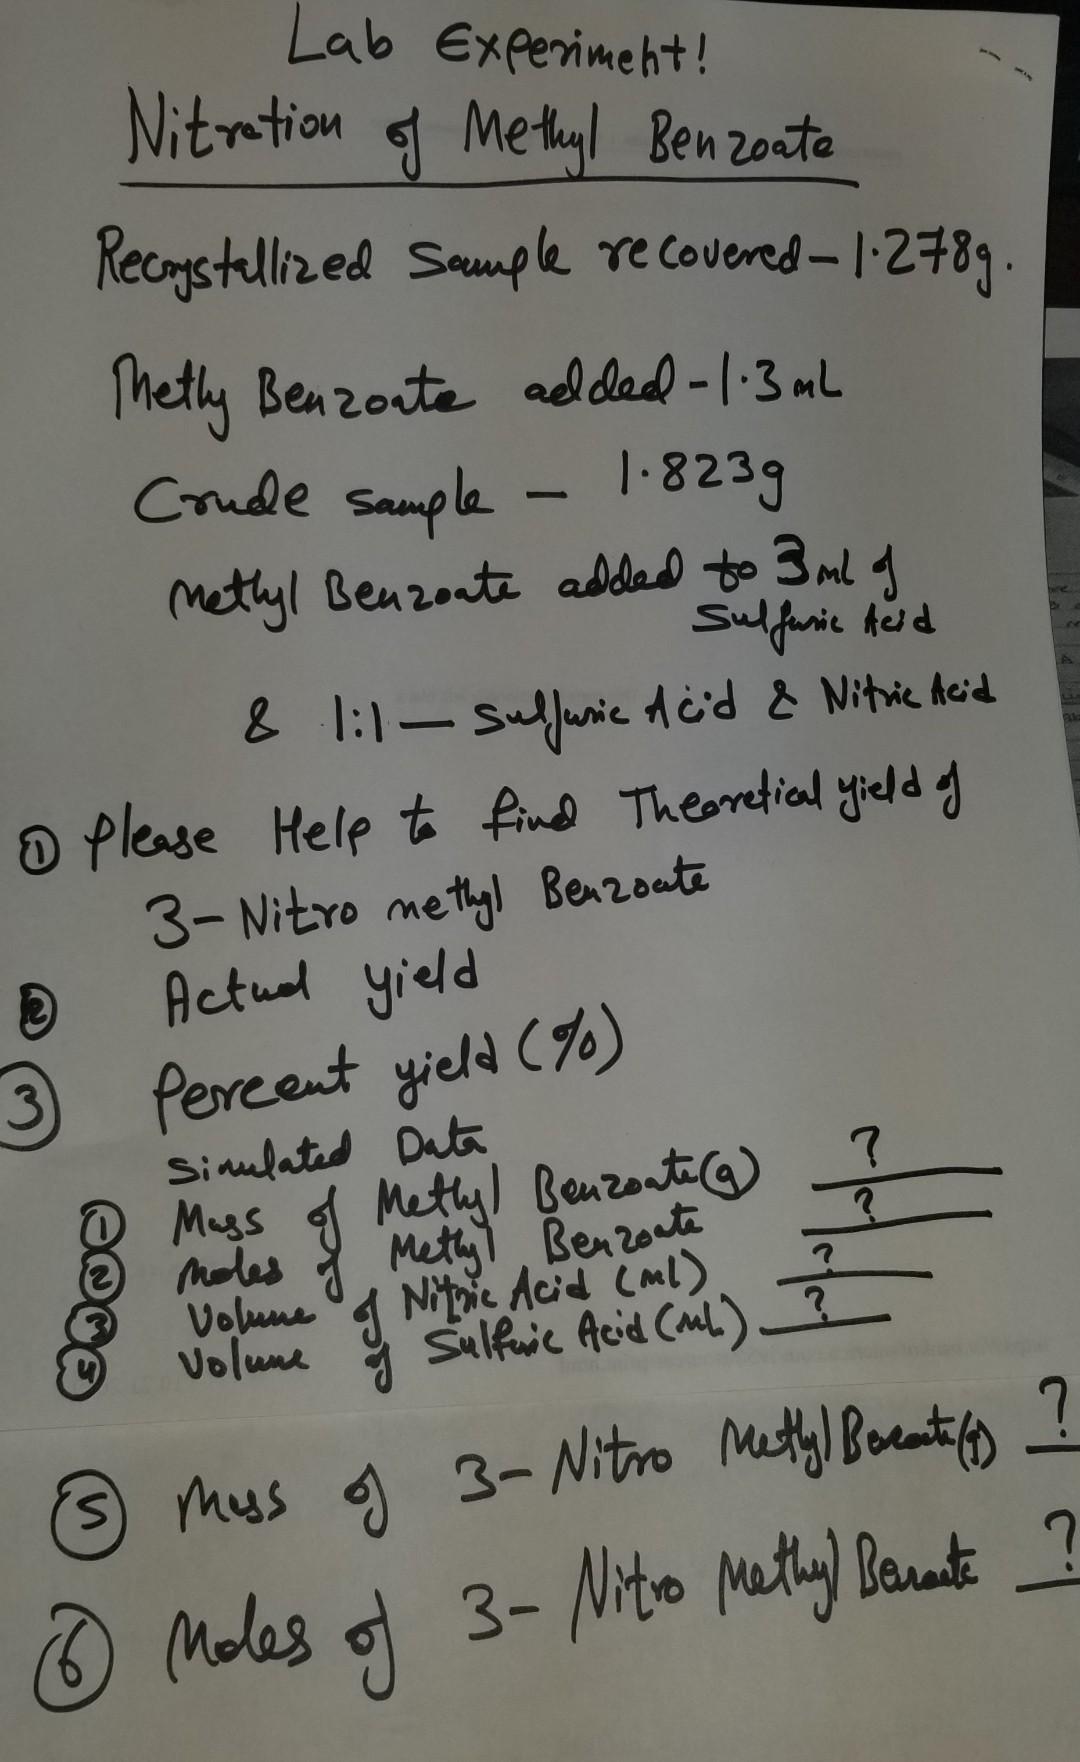 Lab Experiment!
Nitration of Methyl Benzoate
Recrystallized Sample recovered - 1.278g.
Methy Benzoate added - 1.3 mL
Crude sample - 1.823g
Methyl Benzoate added to 3 ml of
Sulfuric Acid
& 1:1 — Sulfuric Acid & Nitric Acid
① Please Help to find Theoretical yield of
3-Nitro methyl Benzoate
② Actual yield
③ Percent yield (%)
Simulated Data
① Mass of Methyl Benzoate (g) ?
② Moles of Methyl Benzoate ?
③ Volume of Nitric Acid (ml) ?
④ Volume of Sulfuric Acid (mL) ?
⑤ Mass of 3-Nitro Methyl Benzoate (g) ?
⑥ Moles of 3-Nitro Methyl Benzoate ?